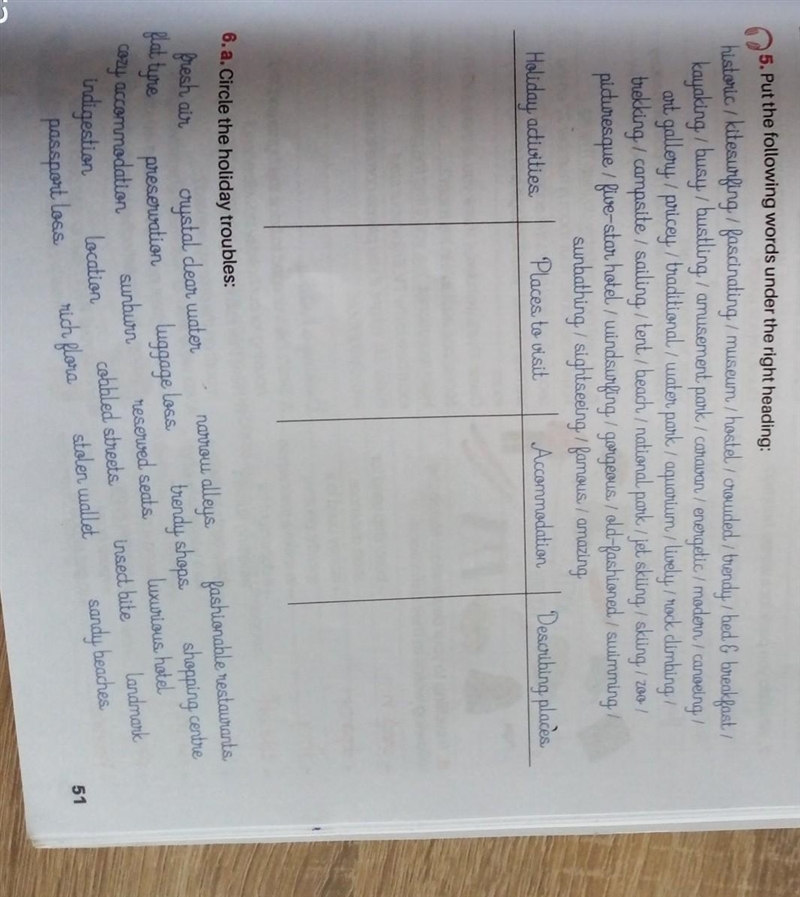 5. Put the following words under the right heading:
historic / kitesurfing / fascinating / museum / hostel / crowded / trendy / bed & breakfast /
kayaking / busy / bustling / amusement park / caravan / energetic / modern / canoeing /
art gallery / pricey / traditional / water park / aquarium / lively / rock climbing /
trekking / campsite / sailing / tent / beach / national park / jet skiing / skiing / zoo /
picturesque / five-star hotel / windsurfing / gorgeous / old-fashioned / swimming /
sunbathing / sightseeing / famous / amazing
Holiday activities Places to visit Accommodation Describing places
6. a. Circle the holiday troubles:
fresh air crystal clear water narrow alleys fashionable restaurants
flat tyre preservation luggage loss trendy shops shopping centre
cozy accommodation sunburn reserved seats luxurious hotel
indigestion location cobbled streets insect bite landmark
passport loss rich flora stolen wallet sandy beaches
51